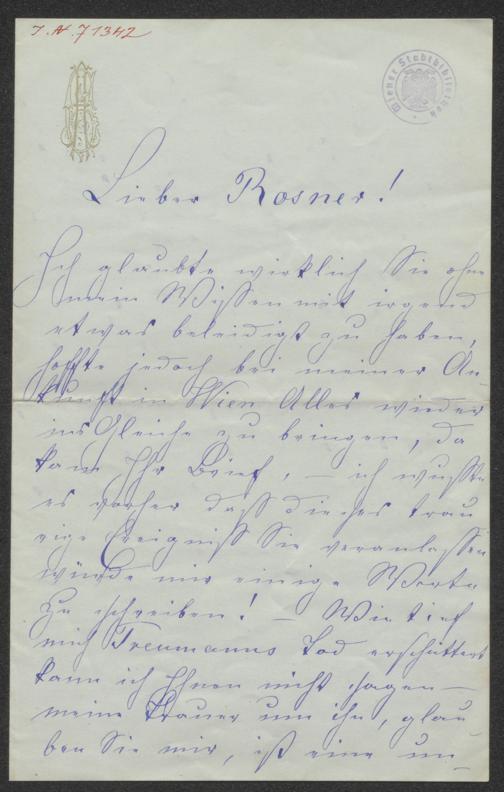 J. N. 71342
Wiener Stadtbibliothek
Lieber Rosner!
Ich glaubte wirklich Sie ohne
mein Wissen mit irgend
etwas beleidigt zu haben,
hoffte jedoch bei meiner An-
kunft in Wien Alles wieder
ins Gleiche zu bringen, da
kam Ihr Brief, – ich wusste
es vorher dass dieses trau
rige Ereigniss Sie veranlassen
würde mir einige Worte
zu schreiben! – Wie tief
mich Treumanns Tod erschüttert
kann ich Ihnen nicht sagen –
meine Trauer um ihn, glau-
ben Sie mir, ist eine un-